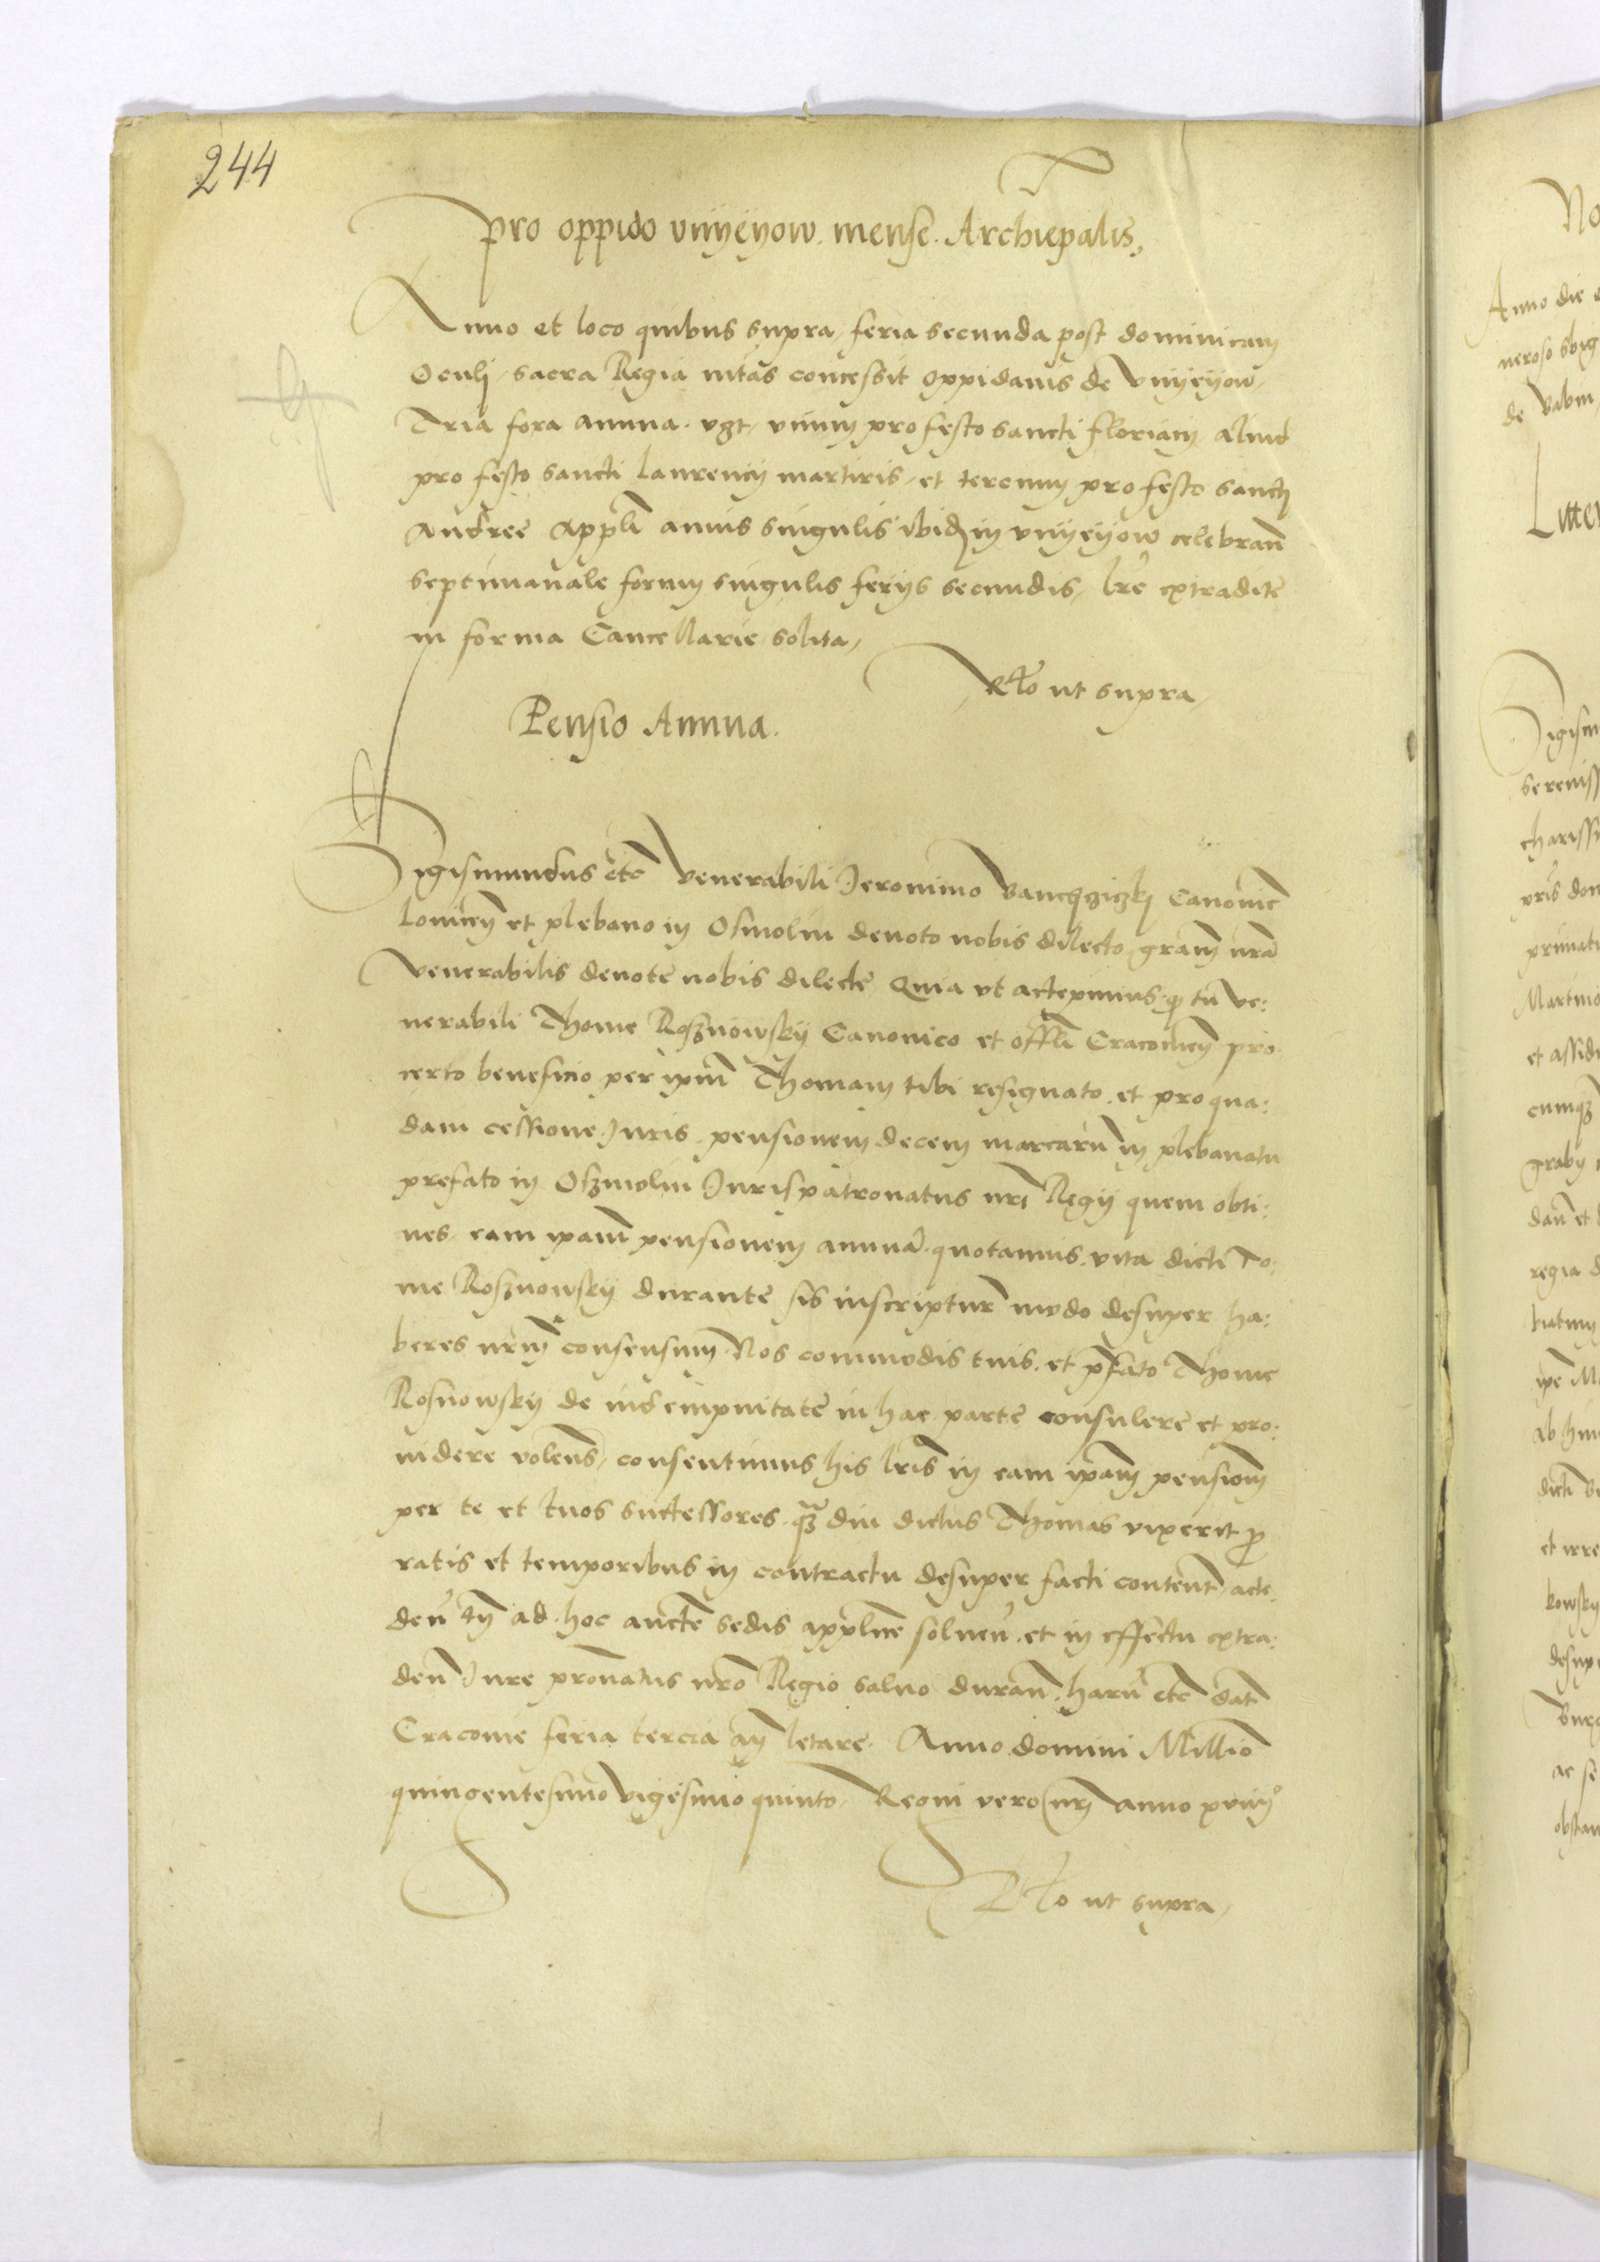 244
Pro oppido Vnyeyow mense Archiepalis,
Anno et loco quibus supra, feria secunda post dominicam
Oculj, sacra Regia mtas concessit oppidanis de Vnyeyow,
Tria fora annua, vzt, vnum pro festo sancti floriani, aliud
pro festo sancti laurencij martiris, et tercium pro festo sanctj
Andree Appli annis singulis ibidem in vnyeyow celebran
septimanale forum singulis ferijs secundis, lre extradite
in forma Cancellarie solita,
Rlo ut supra,
Pensio Annua.
Sigismundus etc Venerabili Jeronimo Canonic
lowicen et plebano in Osmolin deuoto nobis dilecto, gram nram
Venerabilis deuote nobis dilecte, Quia vt accepimus, qp tu ve:
nerabili Thome Rosznowsky Canonico et offli Cracouien pro
certo beneficio per ipm Thomam tibi resignato, et pro qua:
dam cessione Juris, pensionem decem marcaru in plebanatu
prefato in Oszmolin Jurispatronatus nri Regij quem obti:
nes, eam ipam pensionem annua, quotannis, vita dicti To:
me Rosznowsky durante, sis inscriptur modo desuper ha:
beres nrm consensum, Nos commodis tuis, et pfato Thome
Rosnowsky de indempnitate in hac parte consulere et pro:
uidere volens, consentimus his lris in eam ipam pensionm
per te et tuos successores, qz diu dictus Thomas vixerit p
ratis et temporibus in contractu desuper facti content, acce
den tn ad hoc aucte sedis applice soluen, et in effectu extra:
den Jure pronatus nro Regio saluo duran, haru etc dat
Cracouie feria tercia an letare. Anno domini Millio
quingentesimo vigesimo quinto, Regni vero nri anno xviiij°
Rlo ut supra,
No
Anno die
neroso sbig
de babin
Litter
Sigism
sereniss
chariss
pris don
primat
Martino
et assidu
cumqz
graby
dan et
regia d
ipe M
ab hui
dicti
et irre
kowsky
desup
ac se
obstan